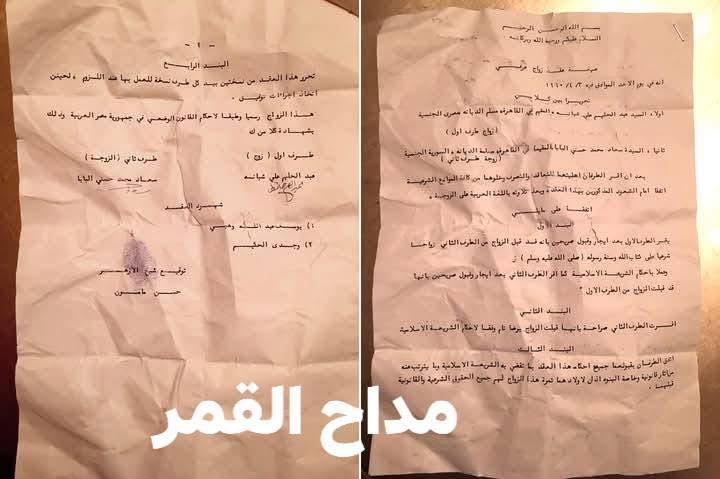 بسم الله الرحمن الرحيم
السلام عليكم ورحمة الله وبركاته
صيغة عقد زواج عرفي
انه في يوم الاحد الموافق
تحريرا بين كلا من
اولا : السيد عبد الحليم علي شبانه القاهره مسلم الديانه مصري الجنسية
( زواج طرف اول )
ثانيا : السيدة سعاد محمد حسني البابا المقيمه في القاهره مسلمة الديانه السورية الجنسية
( زوجة طرف ثاني )
بعد ان اقر الطرفان اهليتهما للتعاقد والتصرف وخلوهما من كافة الموانع الشرعية
اتفقا امام الشهود المذكورين بهذا العقد وبعد تلاوته باللغة العربية على الزوجية
اتفقا على مايلي
البند الاول
يقر الطرف الاول بعد ايجاب وقبول صريحين بانه قد قبل الزواج من الطرف الثاني زواجا
شرعيا على كتاب الله وسنة رسوله ( صلى الله عليه وسلم )
وعملا باحكام الشريعة الاسلامية كما اقر الطرف الثاني بعد ايجاب وقبول صريحين بانها
قد قبلت الزواج من الطرف الاول
البند الثاني
اقرت الطرف الثاني صراحة بانها قبلت الزواج برضا تام وفقا لاحكام الشريعة الاسلامية
البند الثالث
الطرفان بقبولهما جميع احكام هذا العقد بما تقضي به الشريعة الاسلامية وما يترتب عنه
من اثار قانونية وخاصة البنوه لاولادهما ثمرة هذا الزواج لهم جميع الحقوق الشرعية والقانونية
قبلهما
- ٢ -
البند الرابع
تحرر هذا العقد من نسختين بيد كل طرف نسخة للعمل بها عند اللزوم ولحين
اتخاذ اجراءات توثيق
هذا الزواج رسميا وطبقا لاحكام القانون الوضعي في جمهورية مصر العربية وذلك
بشهادة كلا من
طرف اول ( زوج ) طرف ثاني ( الزوجة )
عبد الحليم علي شبانه سعاد محمد حسني البابا
شهود العقد
١) يوسف عبد الله وهبي
٢) وجدى الحكيم
توقيع شيخ الازهر
حسن مامون
مداح القمر